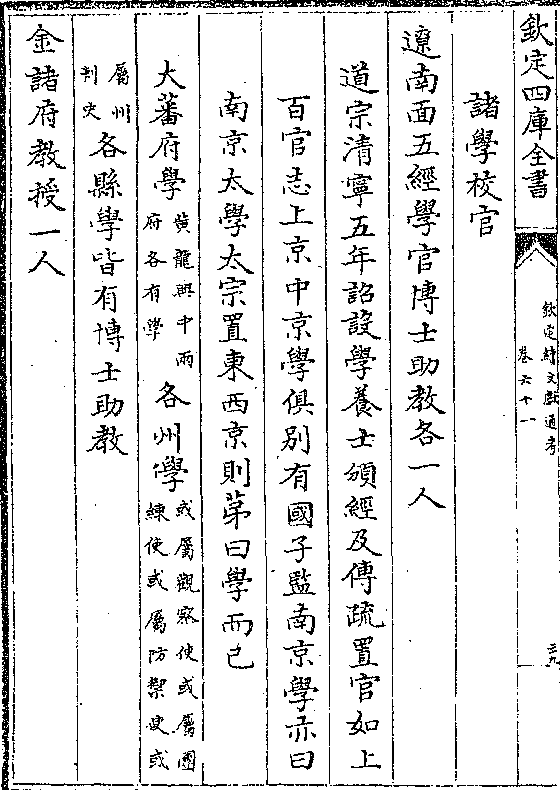 欽定四庫全書
欽定續文獻通考
卷六十一
三九
諸學校官
遼南面五經學官博士助教各一人
道宗清寧五年詔設學養士頒經及傳疏置官如上
百官志上京中京學俱別有國子監南京學亦曰
南京太學太宗置東西京則第曰學而已
大蕃府學黃龍興中兩府各有學各州學或屬觀察使或屬團練使或屬防禦使或
屬州刺史各縣學皆有博士助教
金諸府教授一人